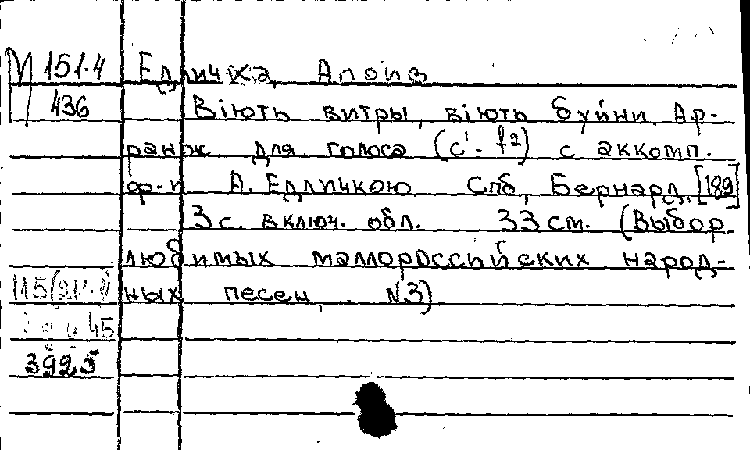 М 151.4 Едличка, Алоиз
436 Віють витры, віють буйни. Ар-
ранж для голоса (c'- f2) с аккомп.
ф-п А. Едличкою Спб, Бернард, [189
3 с. включ. обл. 33 см. (Выбор
любимых маллороссийских народ-
ных песен, . N3)
45
3925